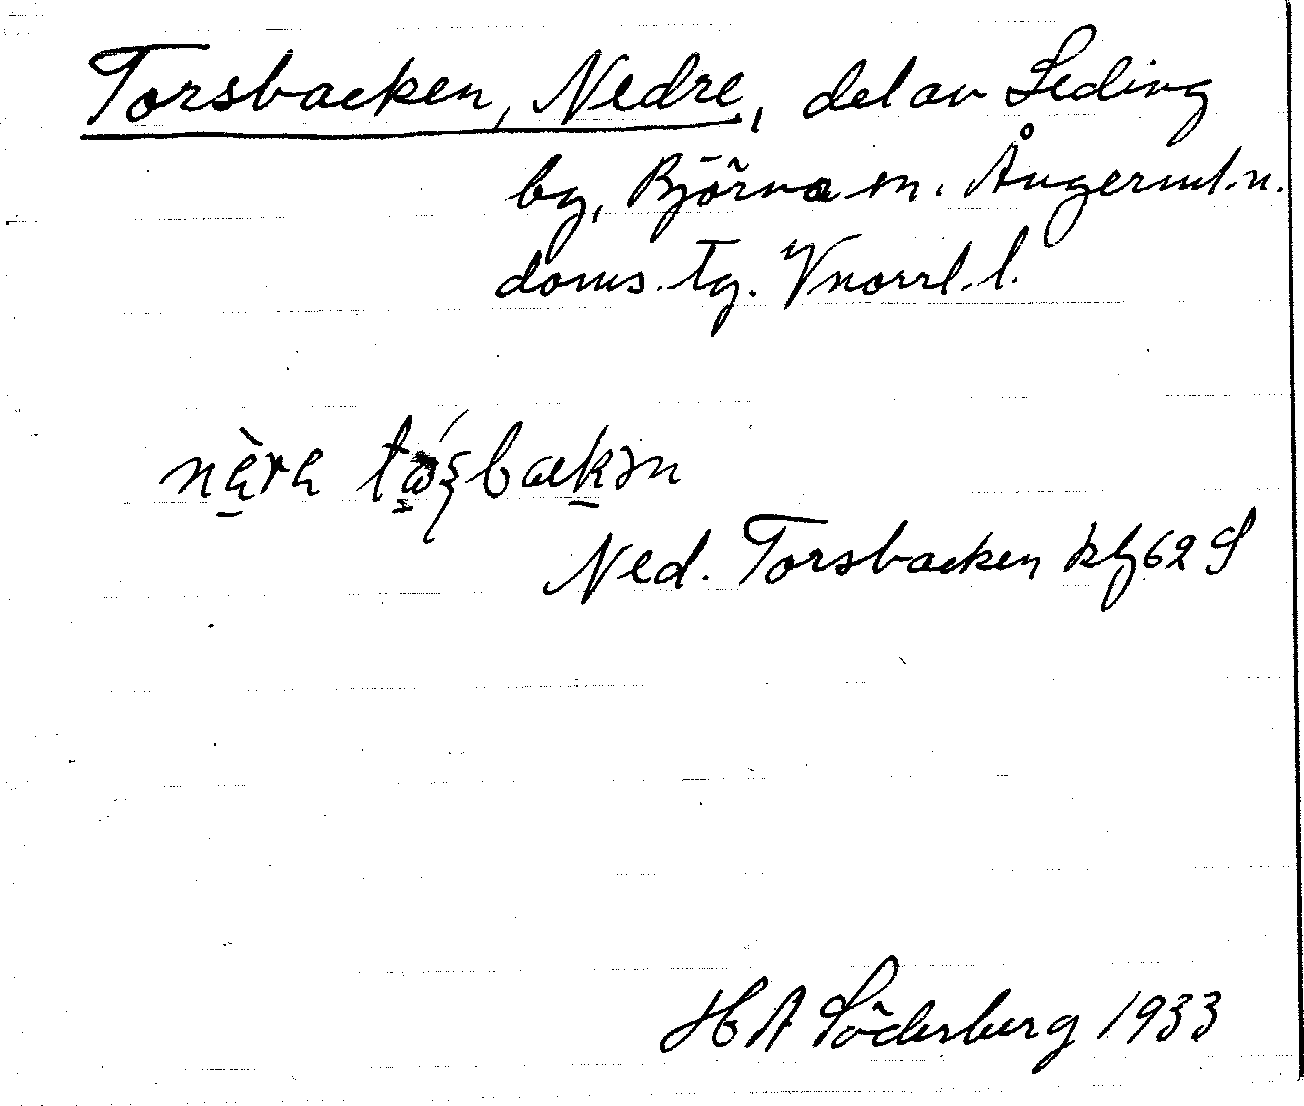 Torsbacken, Nedre, del av Leding
by, Björna sn. Ångerml. n.
doms. tg. Vnorrl. l.
Ned. Torsbacken kbl 62 S
H A Söderberg 1933